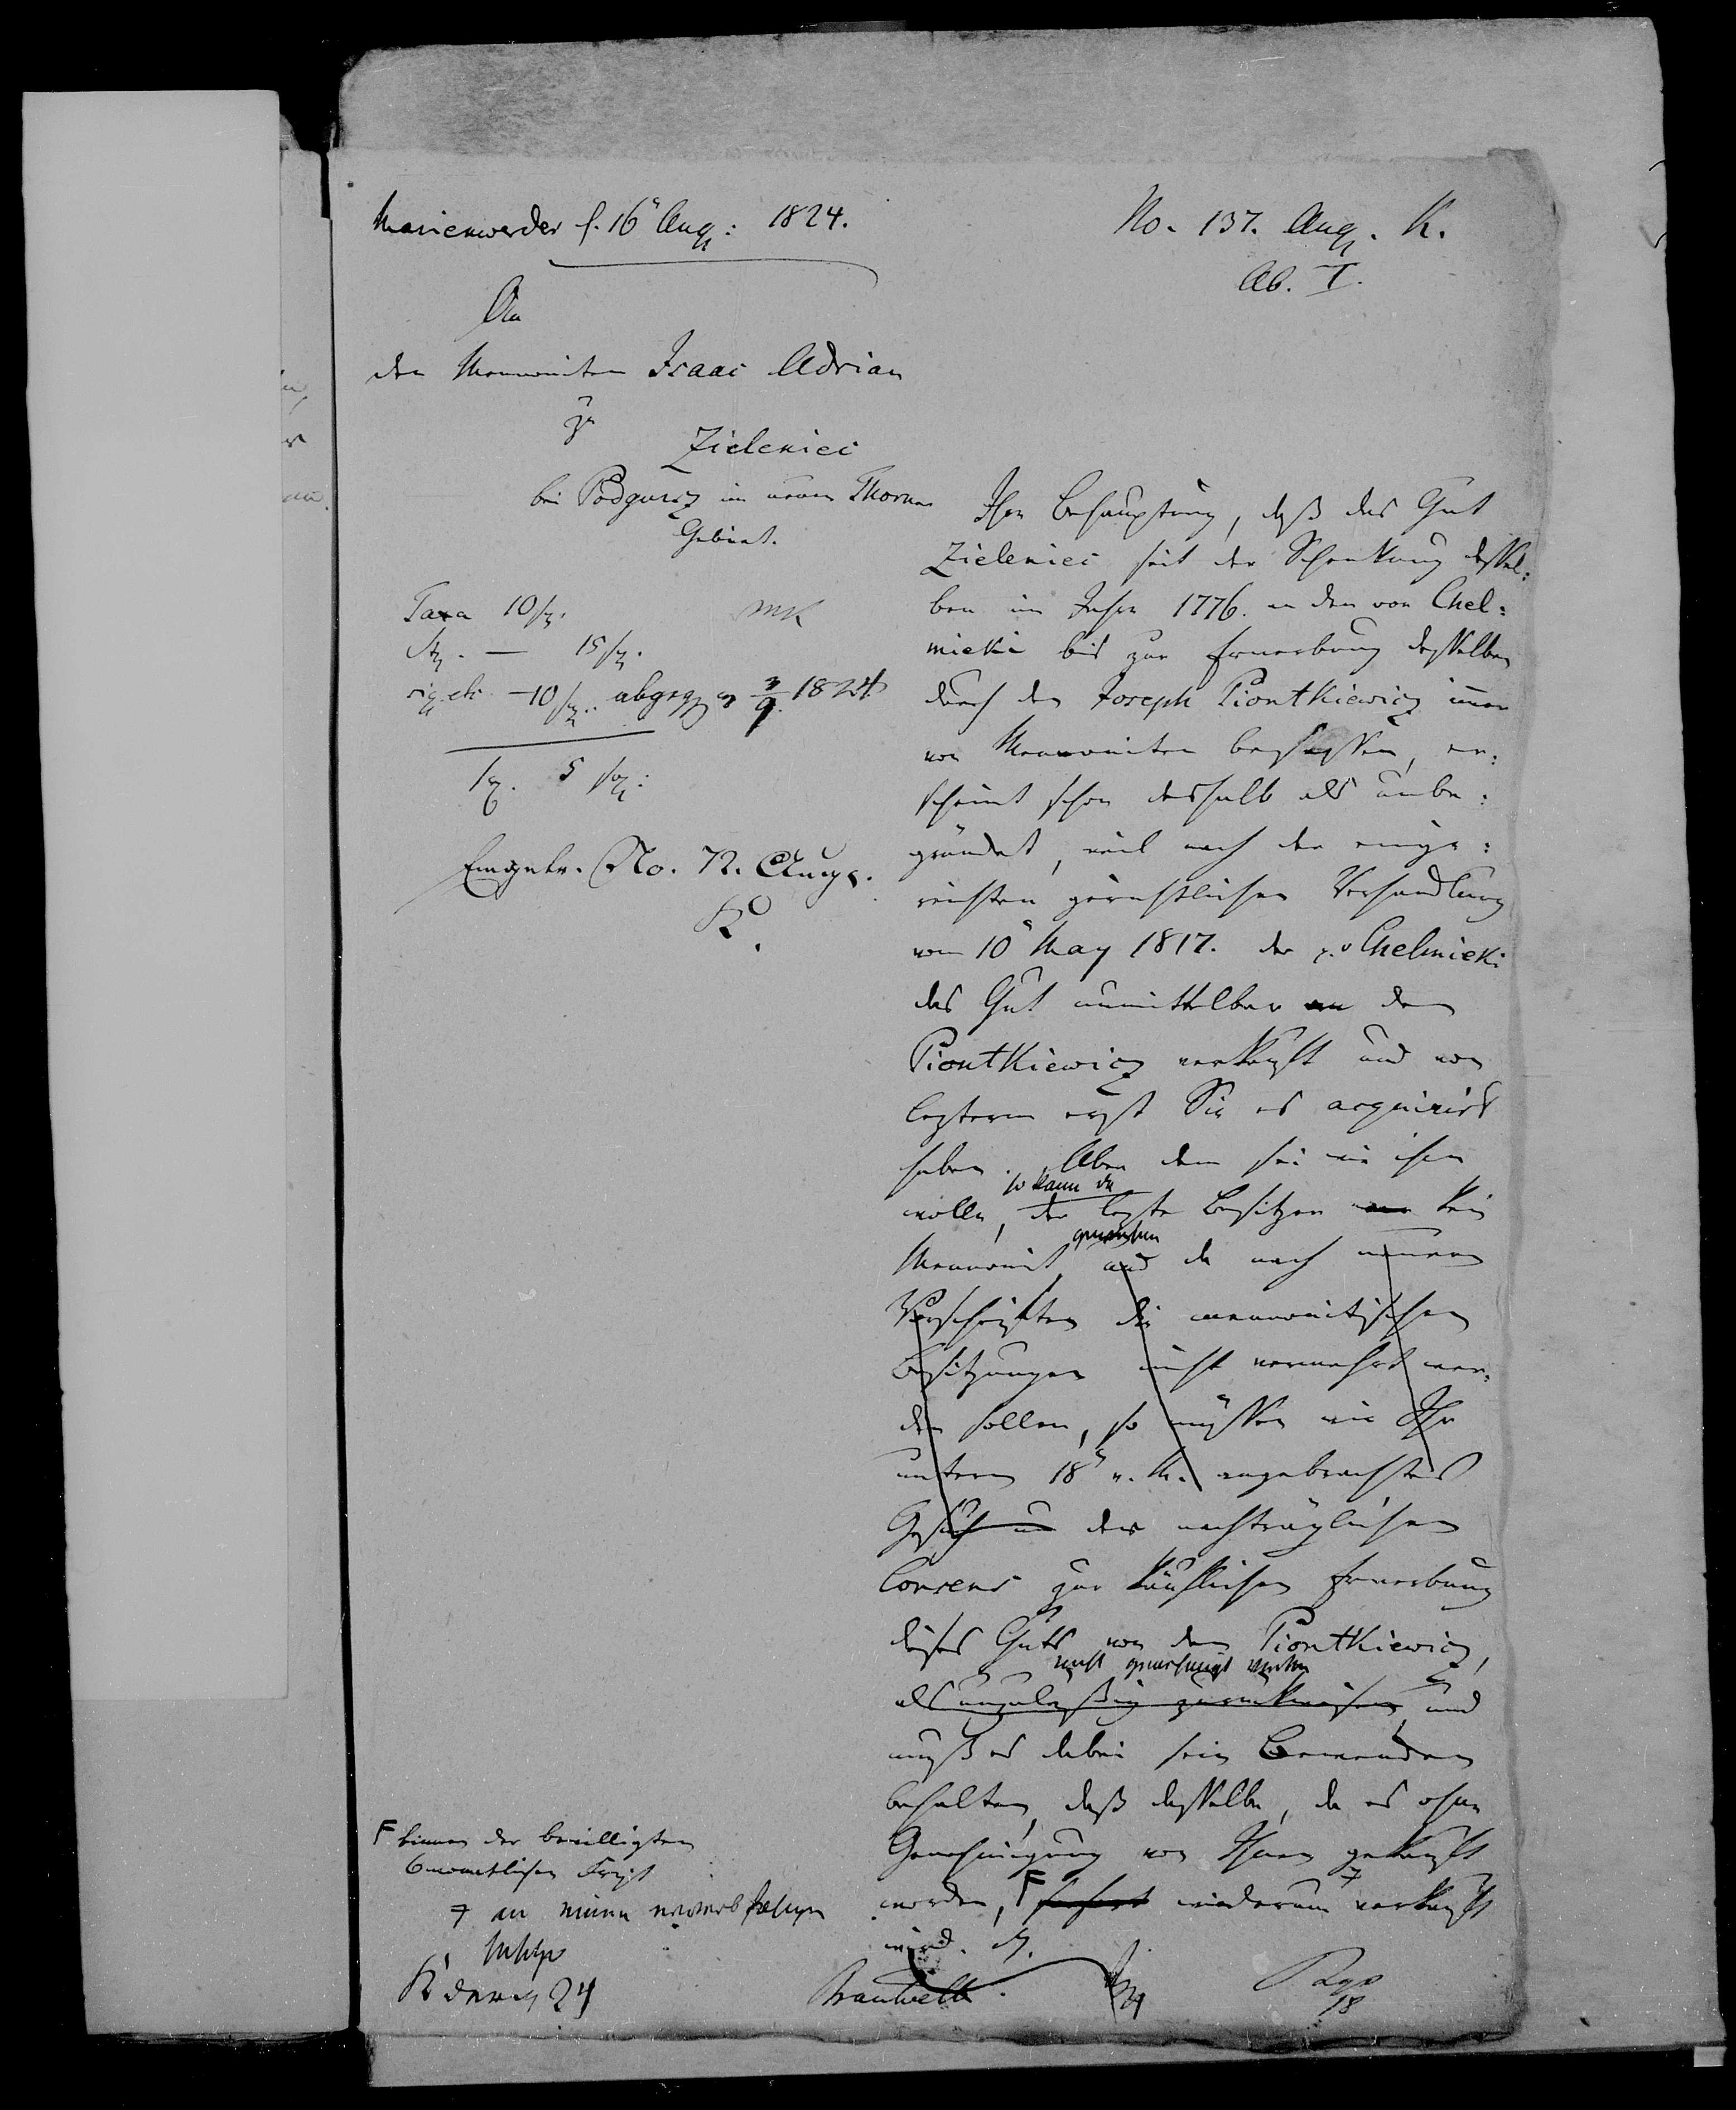 Marienwerder d. 16" Aug: 1824.
No. 137. Aug. K.
Ab. I.
An
den Mennoniten Isaac Adrian
zu
Zieleniec
bei Podgurz im neuen Thorner
Gebiet.
Taxa 10 sg.
15 sg.
10 sg. abges. 1824
5 sg.
Eingetr. No. 72. Augs.
K.
Ihre Behauptung, daß das Gut
Zieleniec seit der Schenkung dessel:
ben im Jahre 1776. an den von Chel:
micki bis zur Erwerbung desselben
durch den Joseph Piontkiewicz immer
von Mennoniten besessen, er:
scheint schon deshalb als unbe:
gründet, weil nach der einge:
reichten gerichtlichen Verhandlung
vom 10" May 1817. der p. v Chelmicki
das Gut unmittelbar an den
Piontkiewicz verkauft und von
letzterem erst Sie es acquirirt
haben. Aber dem sei wie ihm
so kann da
wolle, der letzte Besitzer kein
gewesen
Mennonit und da nach neuern
Vorschriften die mennonitischen
Besitzungen nicht vermehrt wer:
den sollen, so müssen wir Ihr
unterm 18" v. M. angebrachtes
Gesuch um der nachträgliche
Consens zur käuflichen Erwerbung
dieses Guts von dem Piontkiewicz,
nicht genehmigt werden
als unzuläßig zurückweisen, und
muß es dabei sein Bewenden
behalten, daß dasselbe, da es ohne
Genehmigung von Ihnen gekauft
worden, F sofort wiederum ⨍ verkauft
wird.
F binnen der bewilligten
6monatlichen Frist
⨍ an einen erwerbsfähigen
K 24
18